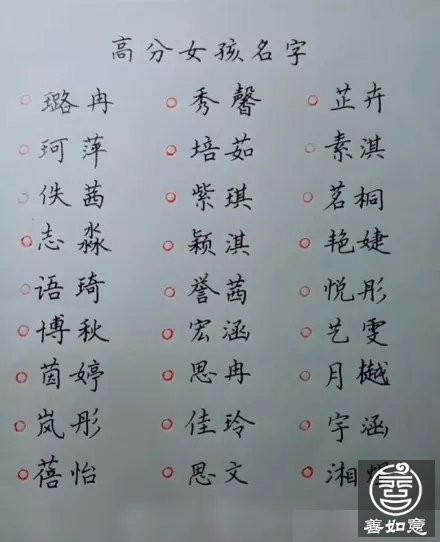 高分女孩名字
璐冉 秀馨 芷卉
珂萍 培茹 素淇
佚茜 紫琪 茗桐
志淼 颖淇 艳婕
语琦 誉茜 悦彤
博秋 宏涵 艺雯
茵婷 思冉 月樾
岚彤 佳玲 宇涵
蓓怡 思文 湘
善如意